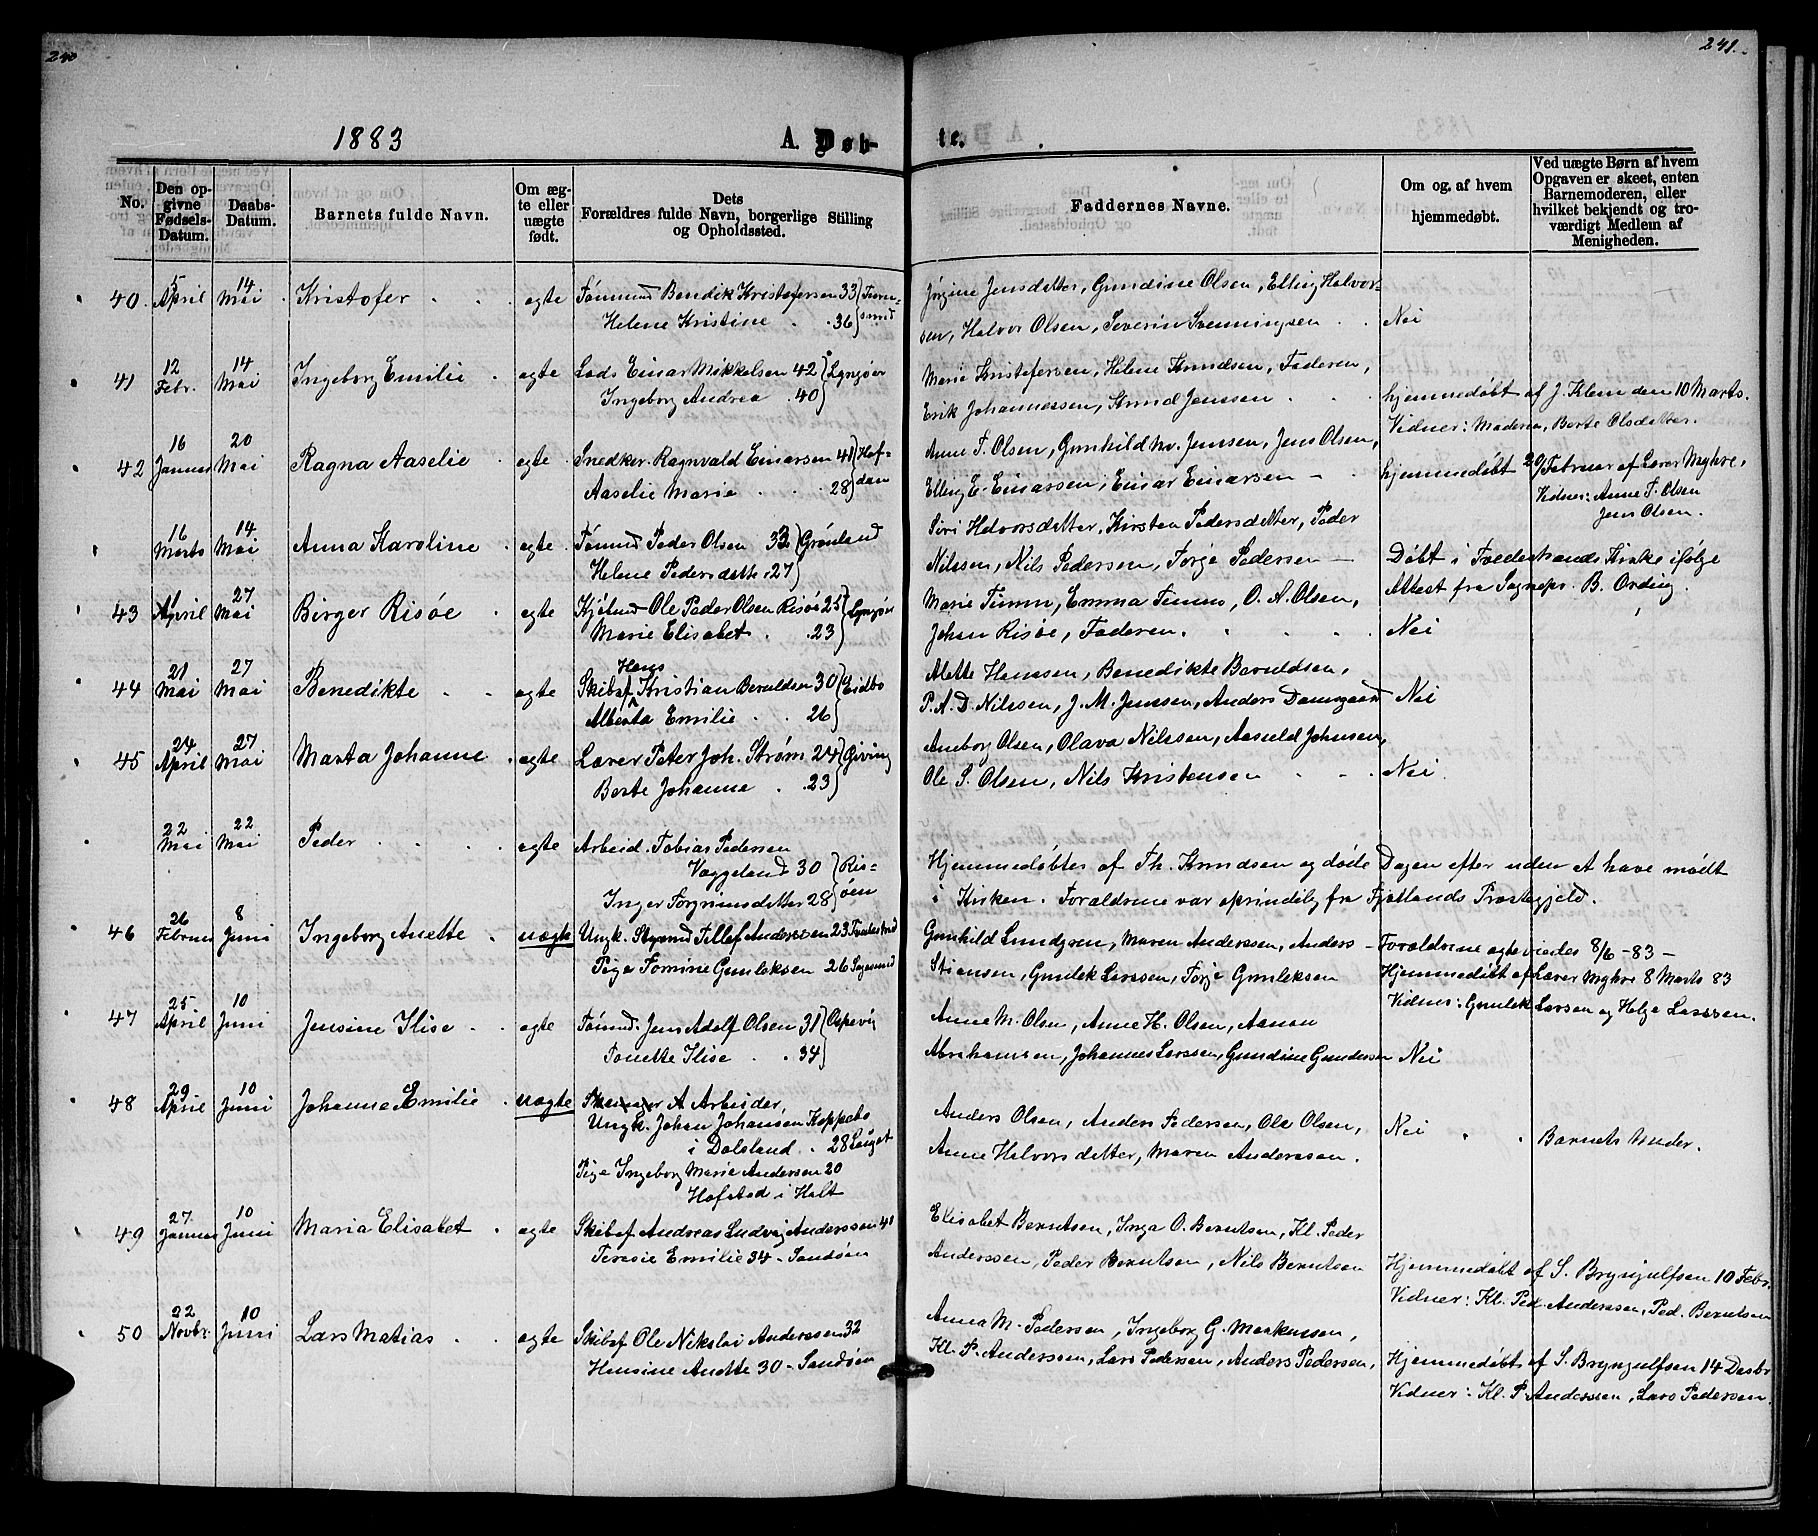 240
241.
1883
A. Døb-
te.
No.
Den opgivne Fødsels-Datum.
Daabs-Datum.
Barnets fulde Navn.
Om ægte eller uægte født.
Dets Forældres fulde Navn, borgerlige Stilling og Opholdssted.
Faddernes Navne.
Om og, af hvem hjemmedøbt.
Ved uægte Børn af hvem Opgaven er skeet, enten Barnemoderen, eller hvilket bekjendt og troværdigt Medlem af Menigheden.
40. 5 April 14 Mai Kristofer ægte Tømmd Bendik Kristofersen 33
Helene Kristine 36
Jørgine Jensdatter, Gundine Olsen, Elling Halvor-
sen, Halvor Olsen, Severin Svenningsen Nei
41 12 Febr. 14 Mai Ingeborg Emilie ægte Lods Einar Mikkelsen 42 Lyngøer
Ingeborg Andrea 40
Marie Kristofersen, Helene Knudsen, Faderen,
Erik Johannessen, Knud Jenssen
hjemmedøbt af J. Klem den 10 Marts.
Vidner: Moderen, Berte Olsdatter.
42 16 Januar 20 Mai Ragna Aaselie ægte Snedker Ragnvald Einarsen 41 Hof-
Aaselie Marie 28 dan
Anne T. Olsen, Gunhild M. Jenssen, Jens Olsen,
Elling E. Einarssen, Einar Einarsen
hjemmedøbt 20/ Februar af Lærer Myhre,
Vidner: Anne T. Olsen
Jens Olsen.
16 Marts 14 Mai Anna Karoline ægte Tømmd Peder Olsen 33 Grønland
Helene Pedersdatter 27
Siri Halvorsdatter, Kirsten Pedersdatter, Peder
Nilssen, Nils Pedersen, Torge Pedersen
Døbt i Tvedestrands Kirke ifølge
Attest fra Sognepr. B. Ording.
43 1 April 27 Mai Birger Risøe ægte Kjøbmd Ole Peder Olsen Risøe 25 Lyngøer
Marie Elisabet 23
Marie Timm, Emma Timm, O. A. Olsen,
Johan Risøe, Faderen. Nei
44 21 Mai 27 Mai Benedikte ægte Skibsf. Hans Kristian Beruldsen 30 Eidbo
Alberta Emilie 26
Alette Hanssen, Benedikte Beruldsen,
P. A. D. Nilssen, J. M. Jenssen, Anders Damgaard Nei
45 24 April 27 Mai Marta Johanne ægte Lærer Peter Joh. Strøm 24 Giving
Berte Johanne 23
Aneborg Olsen, Olava Nilssen, Aanuld Johnsen,
Ole S. Olsen, Nils Kristensen Nei.
22 Mai 22 Mai Peder ægte Arbeid. Tobias Pedersen
Væggeland 30 Ris-
Inger Torgrimsdatter 28 øen
Hjemmedøbtes af Th. Knudsen og døde Dagen efter uden at have mødt
i Kirken. Forældrene var oprindelig fra Fjotlands Præstegjeld.
46 26 Februar 8 Juni Ingeborg Anette uægte Ungk. Styrmd Tellef Anderssen 23 Tvedestrand
Pige Tomine Gunleksen 26 Sagesund
Gunhild Lundgren, Maren Anderssen, Anders
Stiansen, Gunlek Larssen, Torge Gunleksen
Forældrene ægteviedes 8/6-83 -
Hjemmedøbt af Lærer Myhre 8 Marts 83
Vidner: Gunlek Larsen og Helge Larssen.
47 25 April 10 Juni Jensine Ilise ægte Tømmd. Jens Adolf Olsen 31 Ospevig
Tonette Ilise 34
Anne M. Olsen, Anne H. Olsen, Aanon
Abrahamsen, Johannes Larssen, Gundine Gundersen Nei
48 29 April 10 Juni Johanne Emilie uægte A Arbeider,
Ungk. Johan Johansen Koppebo
i Dalsland 28
Pige Ingeborg Marie Andersen 20
Hofstad i Holt
Anders Olsen, Anders Pedersen, Ole Olsen,
Anne Halvorsdatter, Maren Anderssen.
Nei Barnets Moder.
49 27 Januar 10 Juni Maria Elisabet ægte Skibsf Andreas Ludvig Anderssen 41
Teresie Emilie 34 - Sandøen
Elisabet Berntsen, Inga O. Berntsen, Kl. Peder
Anderssen, Peder Berntsen, Nils Berntsen
Hjemmedøbt af S. Brynjulfsen 10 Febr.
Vidner: Kl. Ped. Anderssen, Ped. Berntsen
50 22 Novbr. 10 Juni Lars Matias ægte Skibsf Ole Nikolai Anderssen 32
Hensine Anette 30 - Sandøen
Anna M. Pedersen, Ingeborg G. Markussen,
Kl. P. Anderssen, Lars Pedersen, Anders Pedersen,
Hjemmedøbt af S. Brynjulfsen 14 Desbr
Vidner: Kl. P. Anderssen, Lars Pedersen.